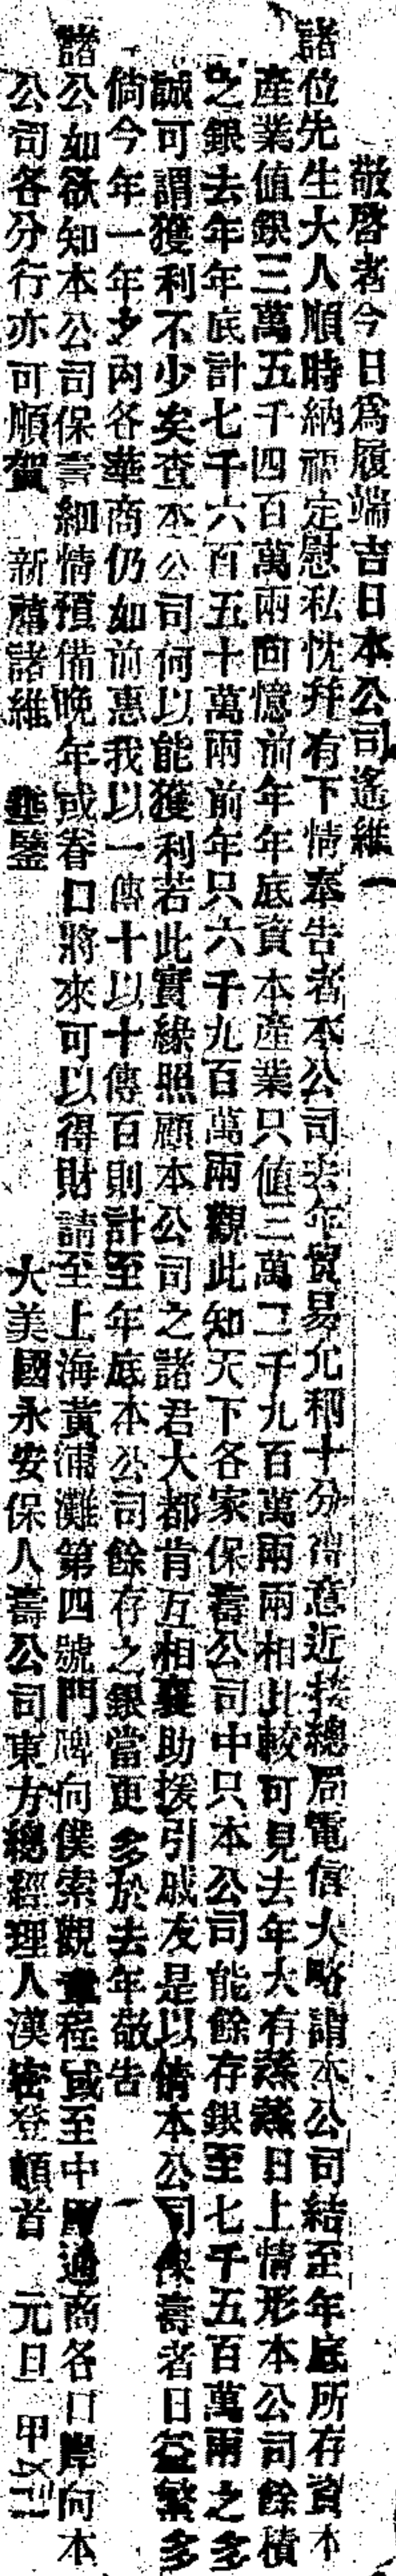 敬啓者今日爲履端吉日本公司遙維
諸位先生大人順時納福定慰私忱幷有下情奉告者本公司去年貿易尤稱十分得意近接總局電信大略謂本公司結至年底所存資本
產業值銀三萬五千四百萬兩回憶前年年底資本產業只值三萬二千九百萬兩兩相比較可見去年大有蒸蒸日上情形本公司餘積
之銀去年年底計七千六百五十萬兩前年只六千九百萬兩觀此知天下各家保壽公司中只本公司能餘存銀至七千五百萬兩之多
誠可謂獲利不少矣查本公司何以能獲利若此實緣照顧本公司之諸君大都肯互相襄助援引戚友是以倩本公司保壽者日益繁多
倘今年一年之內各華商仍如前惠我以一傳十以十傳百則計至年底本公司餘存之銀當更多於去年敬告
諸公如欲知本公司保壽細情預備晚年或眷口將來可以得財請至上海黃浦灘第四號門牌向僕索觀章程或至中國通商各口岸向本
公司各分行亦可順賀 新禧諸維 垂鑒 大美國永安保人壽公司東方總經理人漢密登頓首 元旦 甲